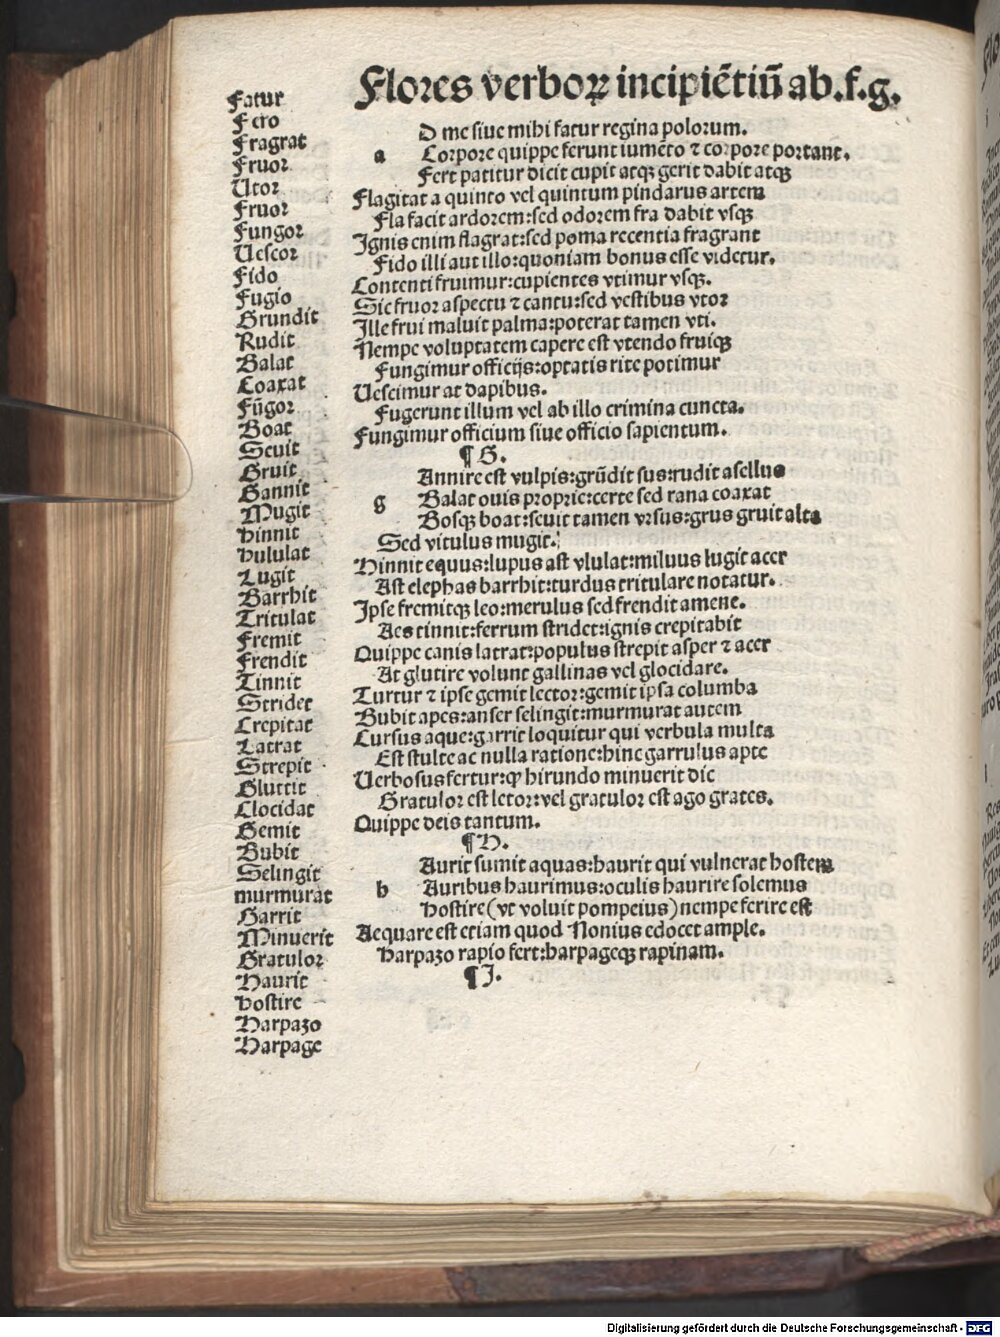 Flores verboꝝ incipiẽtiũ ab.f.g.
Fatur
Fero
Fragrat
Fruor
Utor
Fruor
Fungor
Uescor
Fido
Fugio
Grundit
Rudit
Balat
Coaxat
Fũgor
Boat
Seuit
Gruit
Gannit
Mugit
Hinnit
Hululat
Lugit
Barrhit
Tritulat
Fremit
Frendit
Tinnit
Stridet
Crepitat
Latrat
Strepit
Gluttit
Clocidat
Gemit
Bubit
Selingit
murmurat
Garrit
Minuerit
Gratulor
Haurit
Hostire
Harpazo
Harpage
D me siue mihi fatur regina polorum.
a Corpore quippe ferunt iumẽto ⁊ corpore portant.
Fert patitur dicit cupit atqꝫ gerit dabit atqꝫ
Flagitat a quinto vel quintum pindarus artem
Fla facit ardorem:sed odorem fra dabit vsqꝫ
Ignis enim flagrat:sed poma recentia fragrant
Fido illi aut illo:quoniam bonus esse videtur.
Contenti fruimur:cupientes vtimur vsqꝫ.
Sic fruor aspectu ⁊ cantu:sed vestibus vtor
Ille frui maluit palma:poterat tamen vti.
Nempe voluptatem capere est vtendo fruiqꝫ
Fungimur officijs:optatis rite potimur
Uescimur at dapibus.
Fugerunt illum vel ab illo crimina cuncta.
Fungimur officium siue officio sapientum.
¶ G.
Annire est vulpis:grũdit sus:rudit asellus
g Balat ouis proprie:certe sed rana coaxat
Bosqꝫ boat:seuit tamen vrsus:grus gruit alta
Sed vitulus mugit.
Hinnit equus:lupus ast vlulat:miluus lugit acer
Ast elephas barrhit:turdus tritulare notatur.
Ipse fremitqꝫ leo:merulus sed frendit amene.
Aes tinnit:ferrum stridet:ignis crepitabit
Quippe canis latrat:populus strepit asper ⁊ acer
At glutire volunt gallinas vel glocidare.
Turtur ⁊ ipse gemit lector:gemit ipsa columba
Bubit apes:anser selingit:murmurat autem
Cursus aque:garrit loquitur qui verbula multa
Est stulte ac nulla ratione:hinc garrulus apte
Uerbosus fertur:qꝫ hirundo minuerit dic
Gratulor est letor:vel gratulor est ago grates.
Quippe deis tantum.
¶ H.
Aurit sumit aquas:haurit qui vulnerat hostem
h Auribus haurimus:oculis haurire solemus
Hostire (vt voluit pompeius) nempe ferire est
Aequare est etiam quod Nonius edocet ample.
Harpazo rapio fert:harpageqꝫ rapinam.
¶ I.
Digitalisierung gefördert durch die Deutsche Forschungsgemeinschaft - DFG